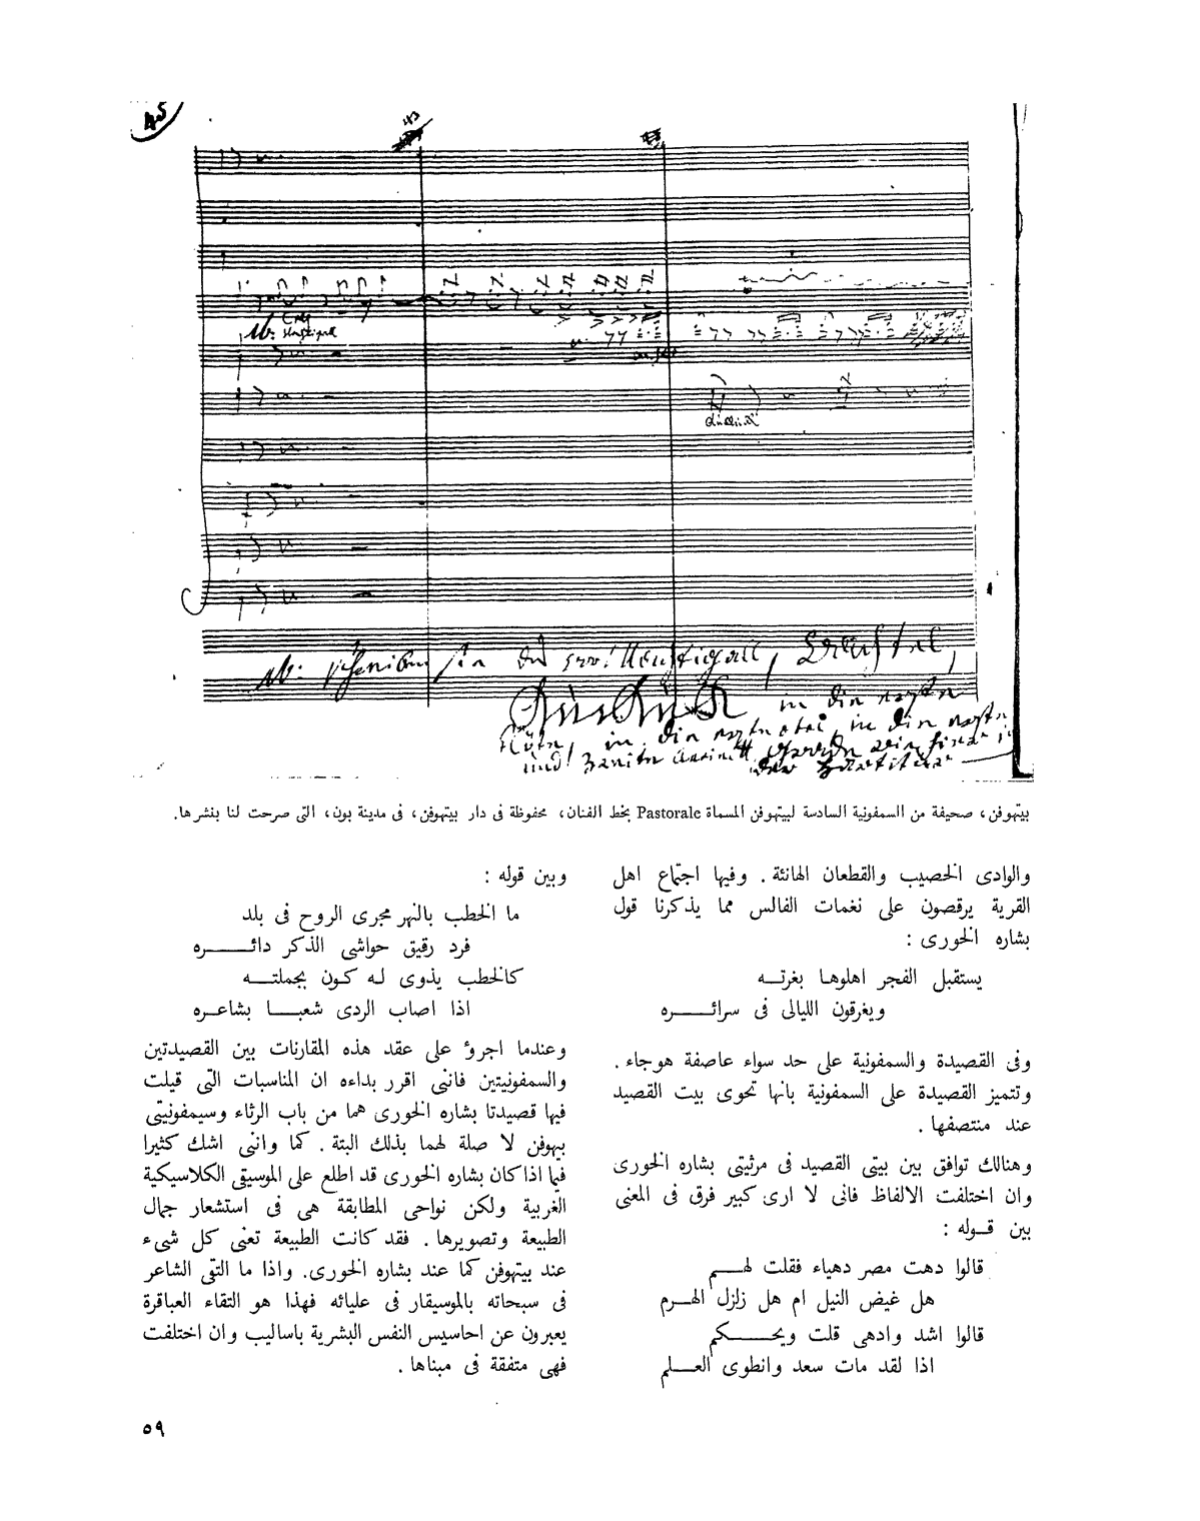 45
43
Nb:
Nachtigall
Quartil
Nb:
in den
in den
und
بيتهوفن، صحيفة من السمفونية السادسة لبيتهوفن المسماة Pastorale بخط الفنان، محفوظة فى دار بيتهوفن، فى مدينة بون، التى صرحت لنا بنشرها.
والوادى الخصيب والقطعان الهانئة. وفيها اجتماع اهل
القرية يرقصون على نغمات الفالس مما يذكرنا قول
بشاره الخورى :
يستقبل الفجر اهلوها بغرته
ويغرقون الليالى فى سرائره
وفى القصيدة والسمفونية على حد سواء عاصفة هوجاء.
وتتميز القصيدة على السمفونية بانها تحوى بيت القصيد
عند منتصفها.
وهنالك توافق بين بيتى القصيد فى مرثيتى بشاره الخورى
وان اختلفت الالفاظ فانى لا ارى كبير فرق فى المعنى
بين قوله :
قالوا دهت مصر دهياء فقلت لهم
هل غيض النيل ام هل زلزل الهرم
قالوا اشد وادهى قلت ويحكم
اذا لقد مات سعد وانطوى العلم
وبين قوله :
ما الخطب بالنهر مجرى الروح فى بلد
فرد رقيق حواشى الذكر دائره
كالخطب يذوى له كون بجملته
اذا اصاب الردى شعبا بشاعره
وعندما اجرؤ على عقد هذه المقارنات بين القصيدتين
والسمفونيتين فاننى اقرر بداءه ان المناسبات التى قيلت
فيها قصيدتا بشاره الخورى هما من باب الرثاء وسيمفونيتى
بيهوفن لا صلة لهما بذلك البتة. كما واننى اشك كثيرا
فيما اذا كان بشاره الخورى قد اطلع على الموسيقى الكلاسيكية
الغربية ولكن نواحى المطابقة هى فى استشعار جمال
الطبيعة وتصويرها. فقد كانت الطبيعة تعنى كل شىء
عند بيتهوفن كما عند بشاره الخورى. واذا ما التقى الشاعر
فى سبحاته بالموسيقار فى عليائه فهذا هو التقاء العباقرة
يعبرون عن احاسيس النفس البشرية باساليب وان اختلفت
فهى متفقة فى مبناها.
٥٩